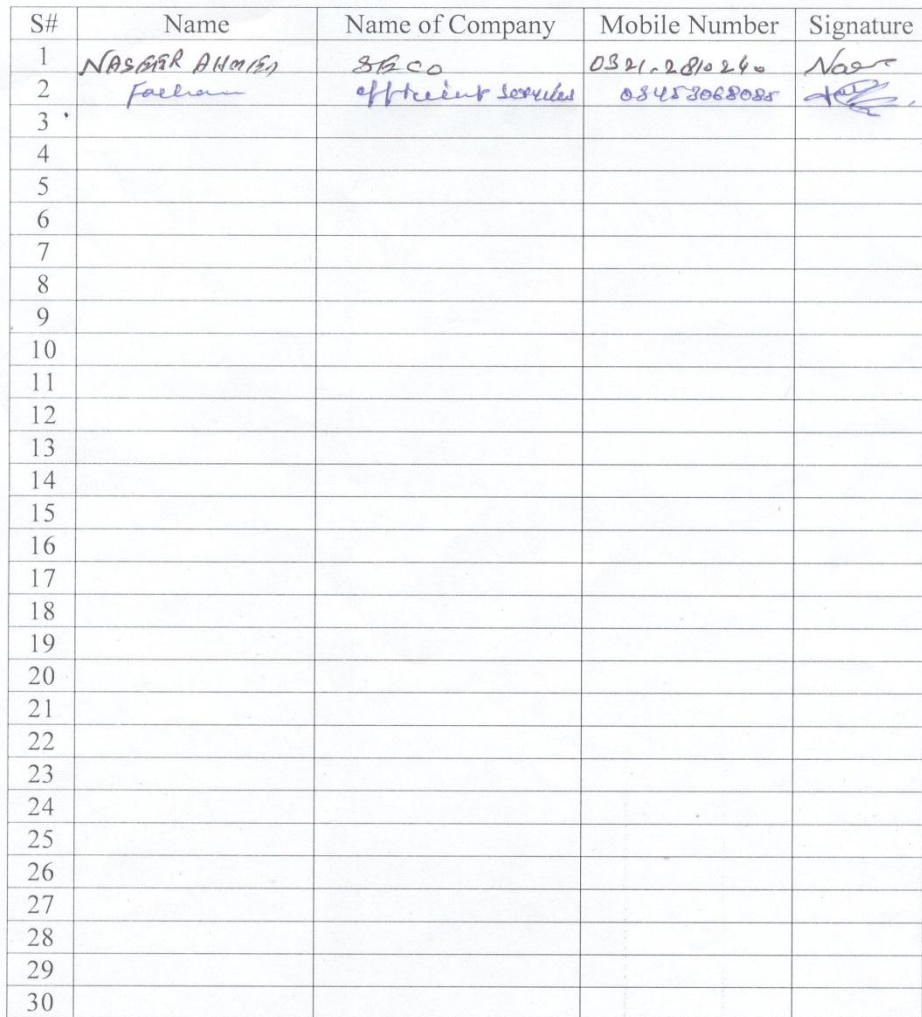 S# Name Name of Company Mobile Number Signature
1 NASEER AHMED SECO 0321-2810240
2 efficient services 03453068085
3
4
5
6
7
8
9
10
11
12
13
14
15
16
17
18
19
20
21
22
23
24
25
26
27
28
29
30